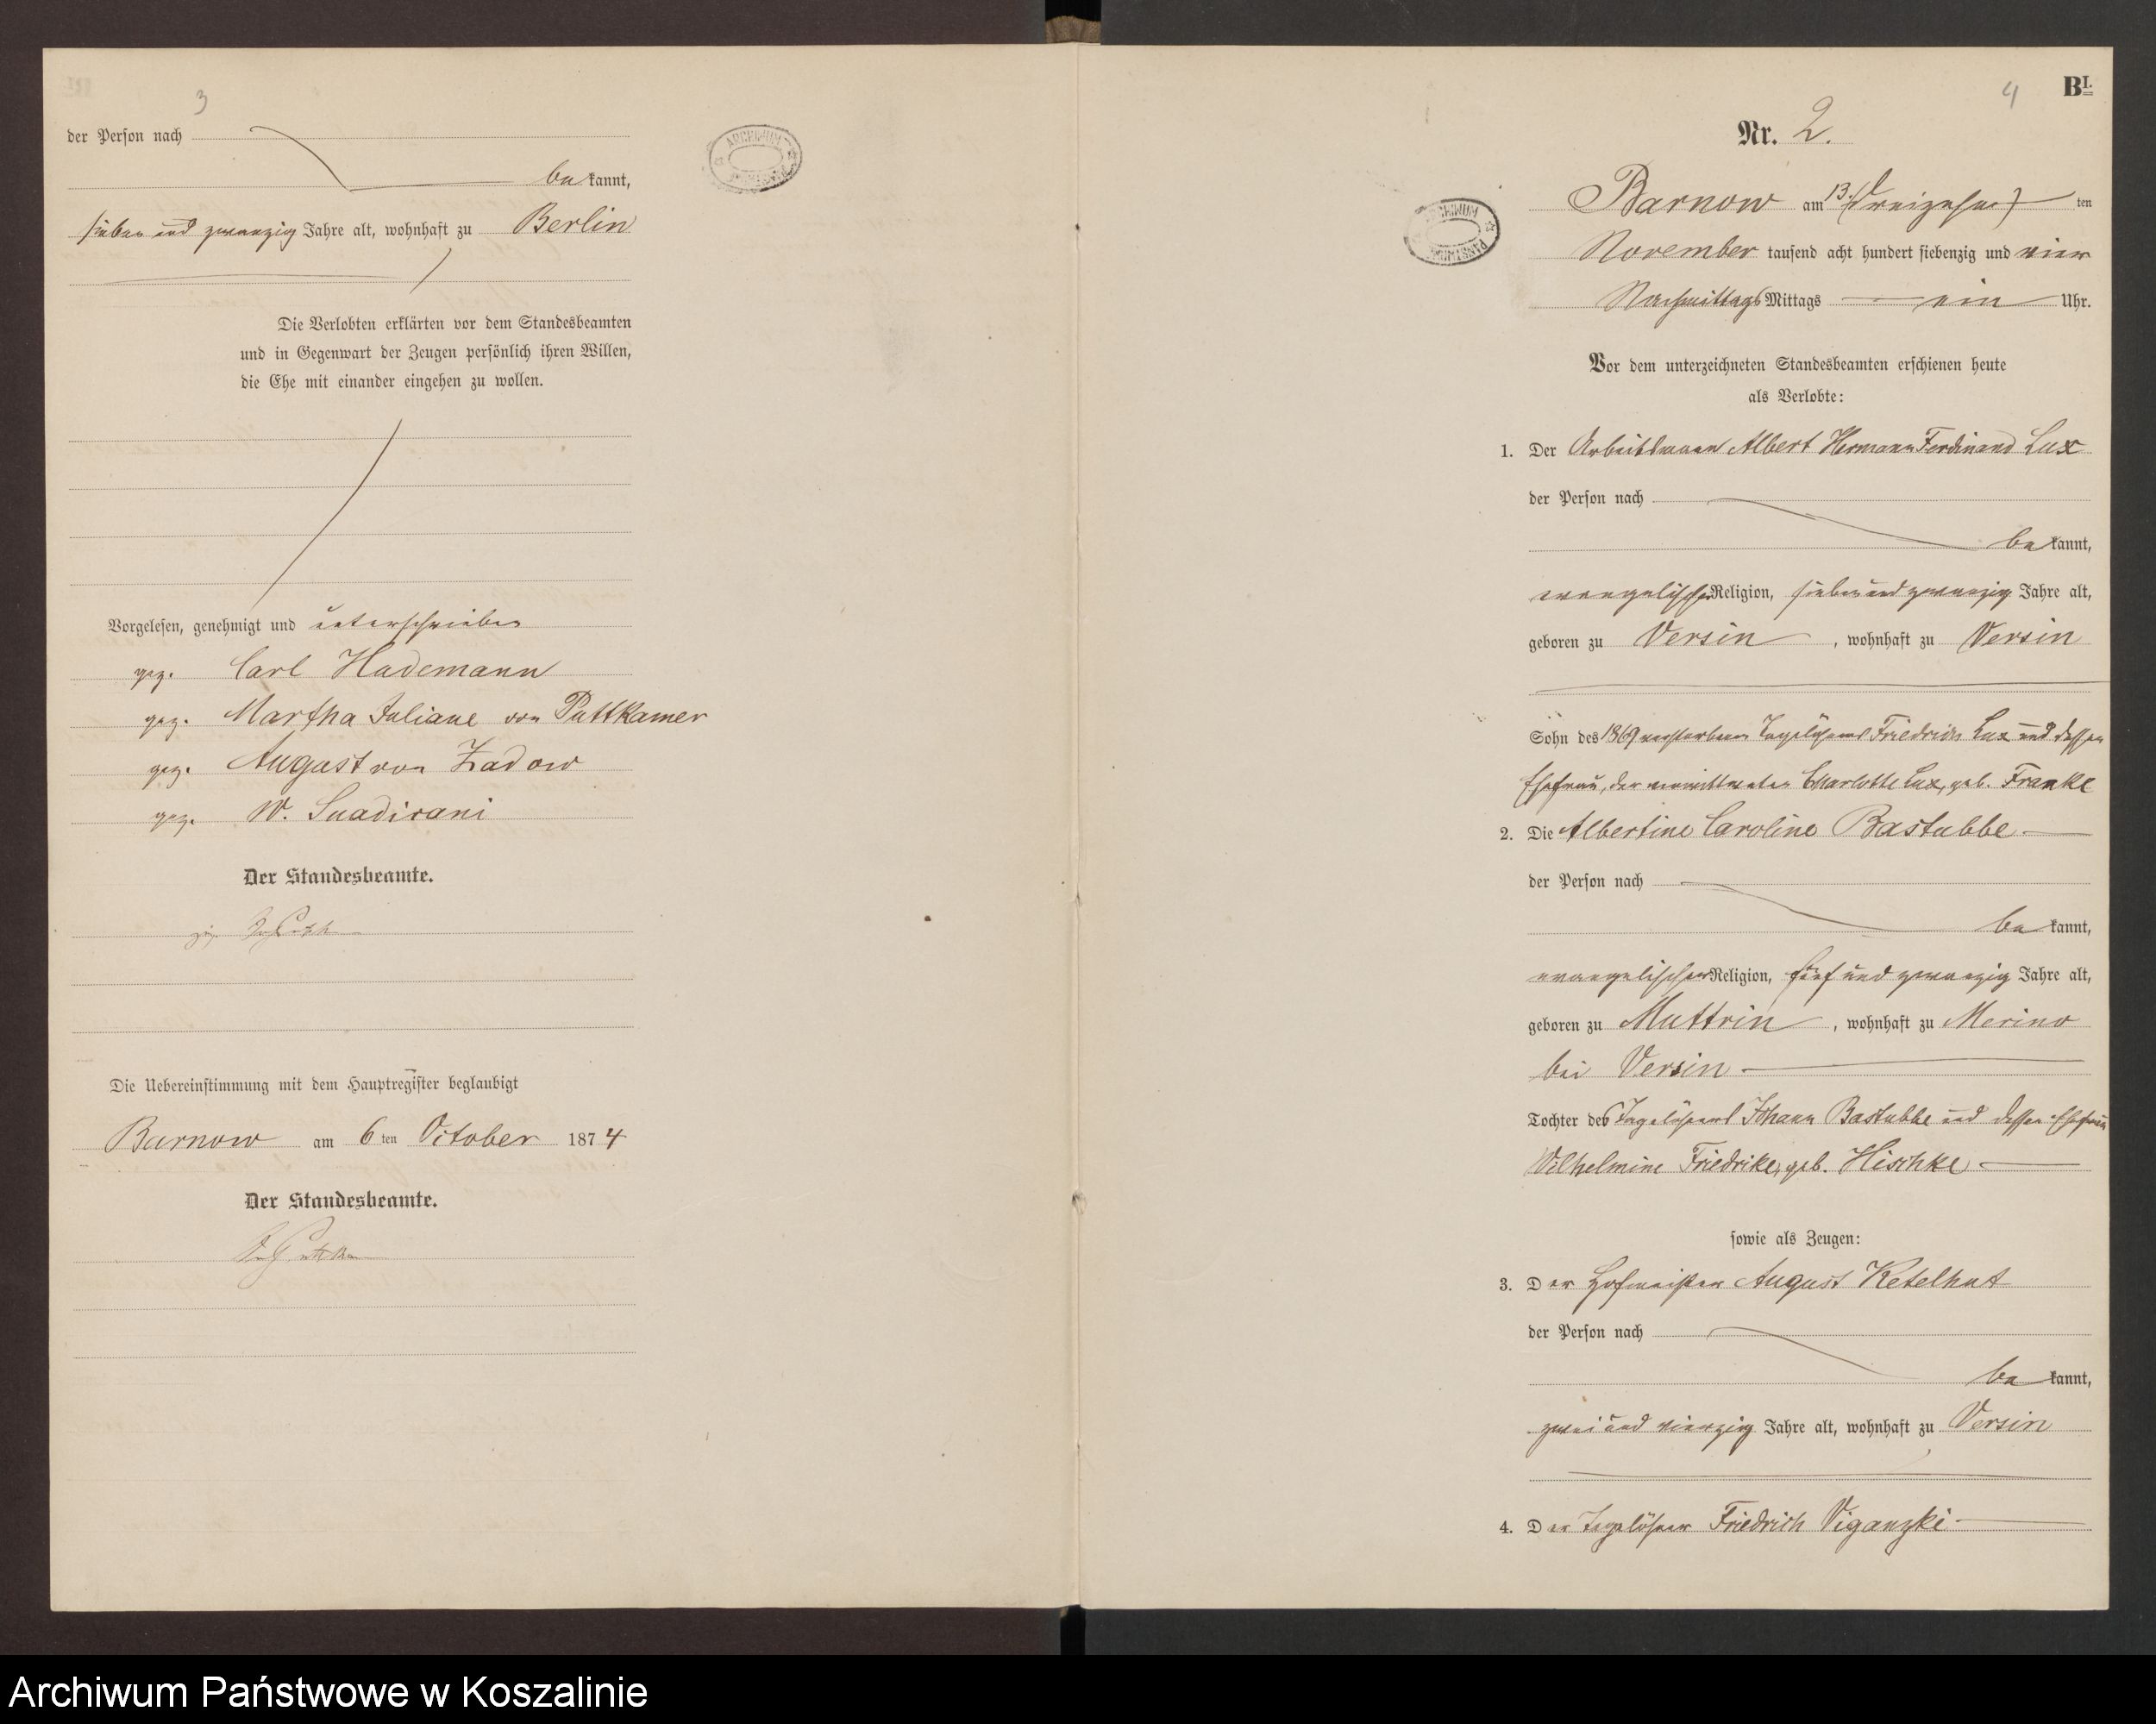 3
der Person nach
bekannt,
sieben und zwanzig Jahre alt, wohnhaft zu Berlin
Die Verlobten erklärten vor dem Standesbeamten
und in Gegenwart der Zeugen persönlich ihren Willen,
die Ehe mit einander eingehen zu wollen.
Vorgelesen, genehmigt und unterschrieben
gez. Carl Hademann
gez. Martha Juliane von Puttkamer
gez. August von Zadow
gez. W. Suadicani
Der Standesbeamte.
gez.
Die Uebereinstimmung mit dem Hauptregister beglaubigt
Barnow am 6 ten October 1874
Der Standesbeamte.
ARCHIWUM
4
BI.
Nr. 2.
ARCHIWUM
PAŃSTWOWE
Barnow am 13. (dreizehn) ten
November tausend acht hundert siebenzig und vier
Nachmittags Mittags ein Uhr.
Vor dem unterzeichneten Standesbeamten erschienen heute
als Verlobte:
1. Der Arbeitsmann Albert Hermann Ferdinand Lux
der Person nach
bekannt,
evangelischer Religion, sieben und zwanzig Jahre alt,
geboren zu Versin, wohnhaft zu Versin
Sohn des 1869 verstorbenen Tagelöhners Friedrich Lux und dessen
Ehefrau, der verwittweten Charlotte Lux, geb. Franke
2. Die Albertine Caroline Bastubbe
der Person nach
bekannt,
evangelischer Religion, fünf und zwanzig Jahre alt,
geboren zu Muttrin, wohnhaft zu Merino
bei Versin
Tochter des Tagelöhners Johann Bastubbe und dessen Ehefrau
Wilhelmine Friedrike, geb. Hischke
sowie als Zeugen:
3. Der Hofmeister August Ketelhut
der Person nach
bekannt,
zwei und vierzig Jahre alt, wohnhaft zu Versin
4. Der Tagelöhner Friedrich Viganzki
Archiwum Państwowe w Koszalinie